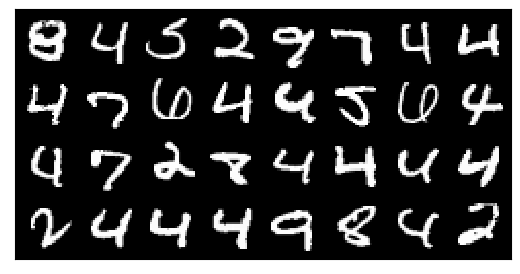 8 4 5 2 9 7 4 4
4 7 6 4 4 5 6 4
4 7 2 8 4 4 4 4
2 4 4 4 9 8 4 2